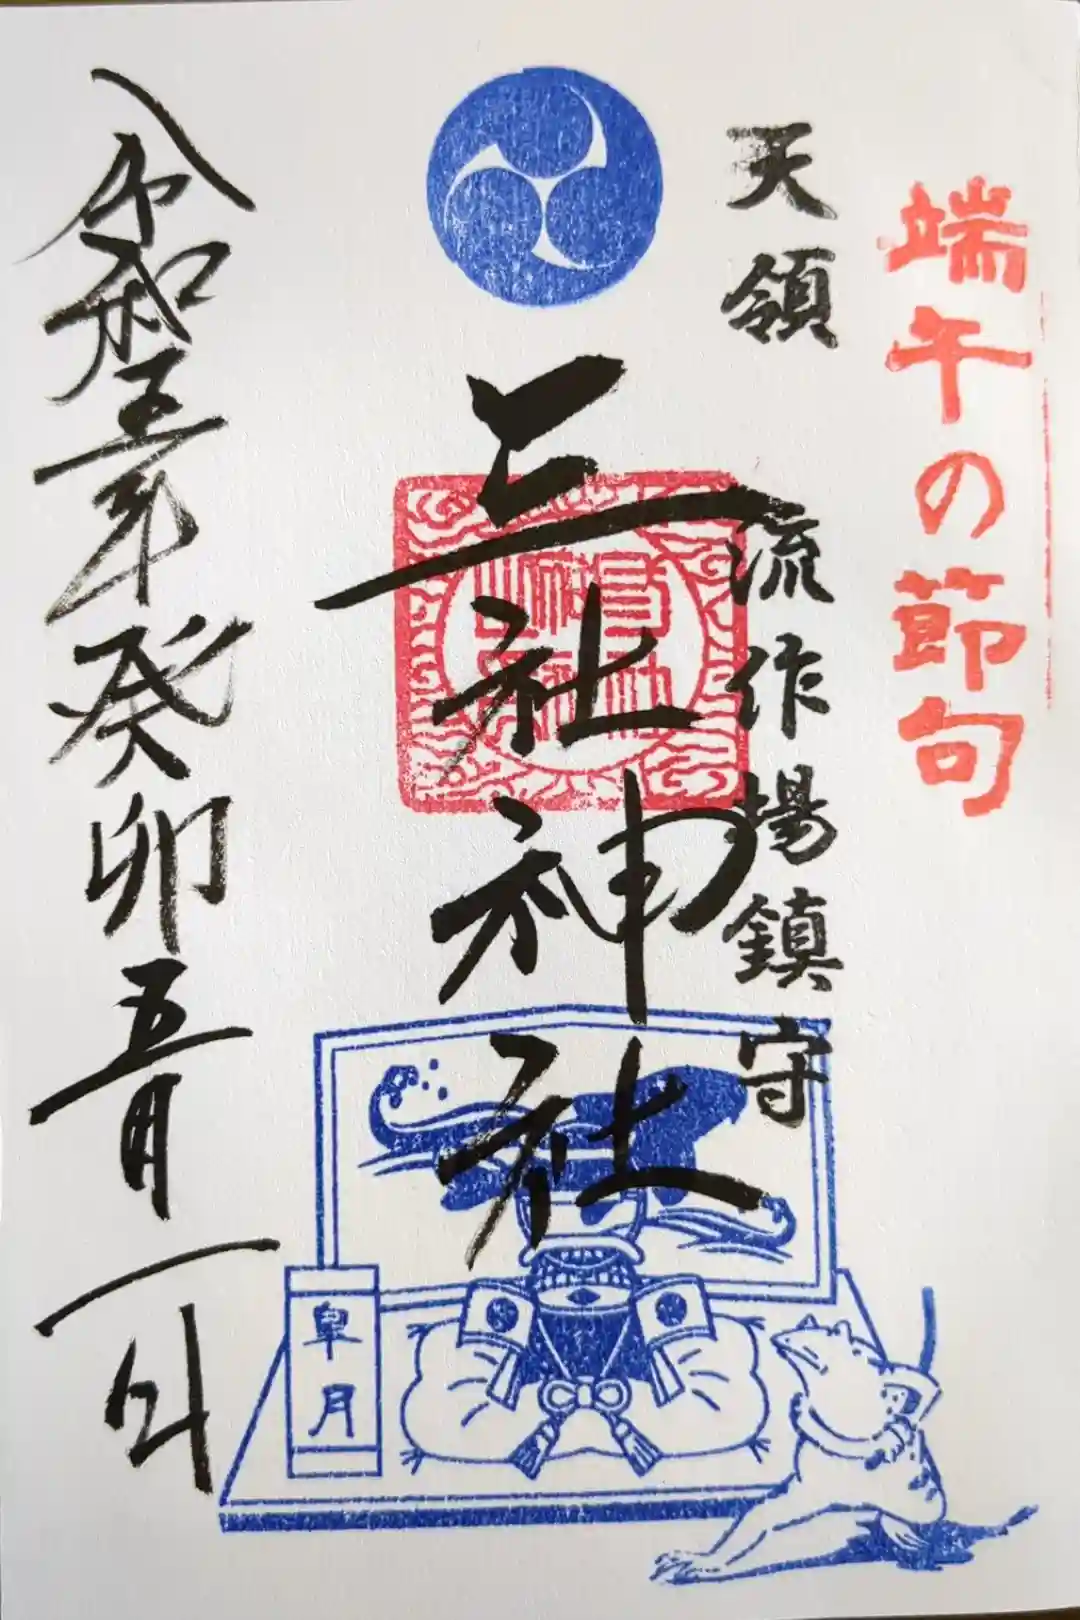 端午の節句
天領
流作場鎮守
三社神社
令和五年癸卯五月一日
皐月